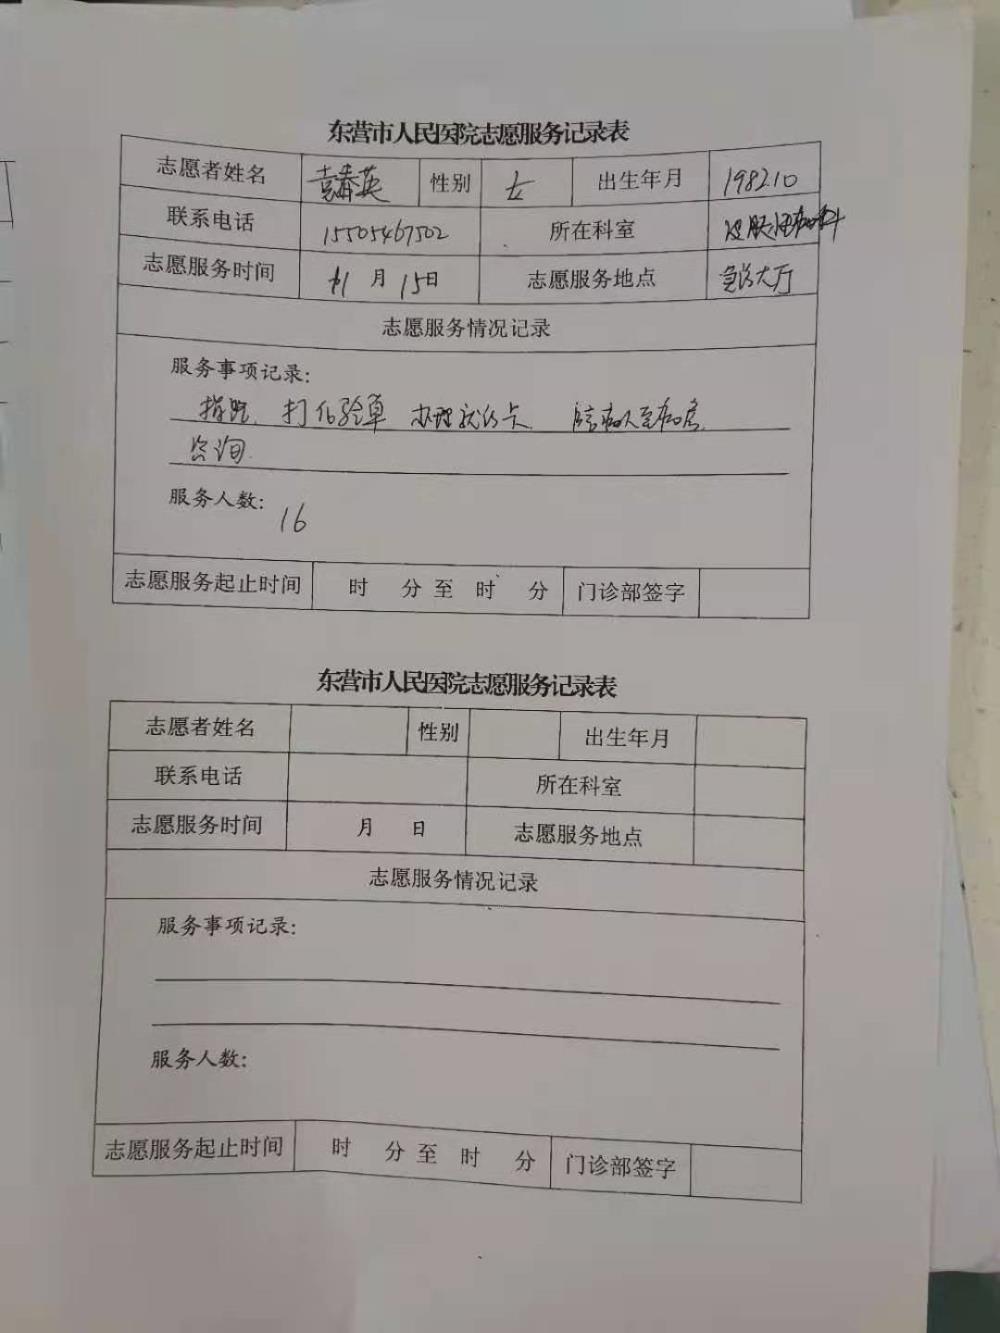 东营市人民医院志愿服务记录表
志愿者姓名 袁春英 性别 女 出生年月 198210
联系电话 15505467502 所在科室 皮肤性病科
志愿服务时间 11月15日 志愿服务地点 急诊大厅
志愿服务情况记录
服务事项记录:
指路、打化验单 办理就诊卡 陪病人至病房
咨询
服务人数: 16
志愿服务起止时间 时 分至 时 分 门诊部签字
东营市人民医院志愿服务记录表
志愿者姓名 性别 出生年月
联系电话 所在科室
志愿服务时间 月 日 志愿服务地点
志愿服务情况记录
服务事项记录:
服务人数:
志愿服务起止时间 时 分至 时 分 门诊部签字